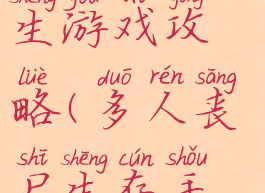 shēng yóu xì gōng
生游戏攻
lüè duō rén sāng
略(多人丧
shī shēng cún shǒu
尸生存手